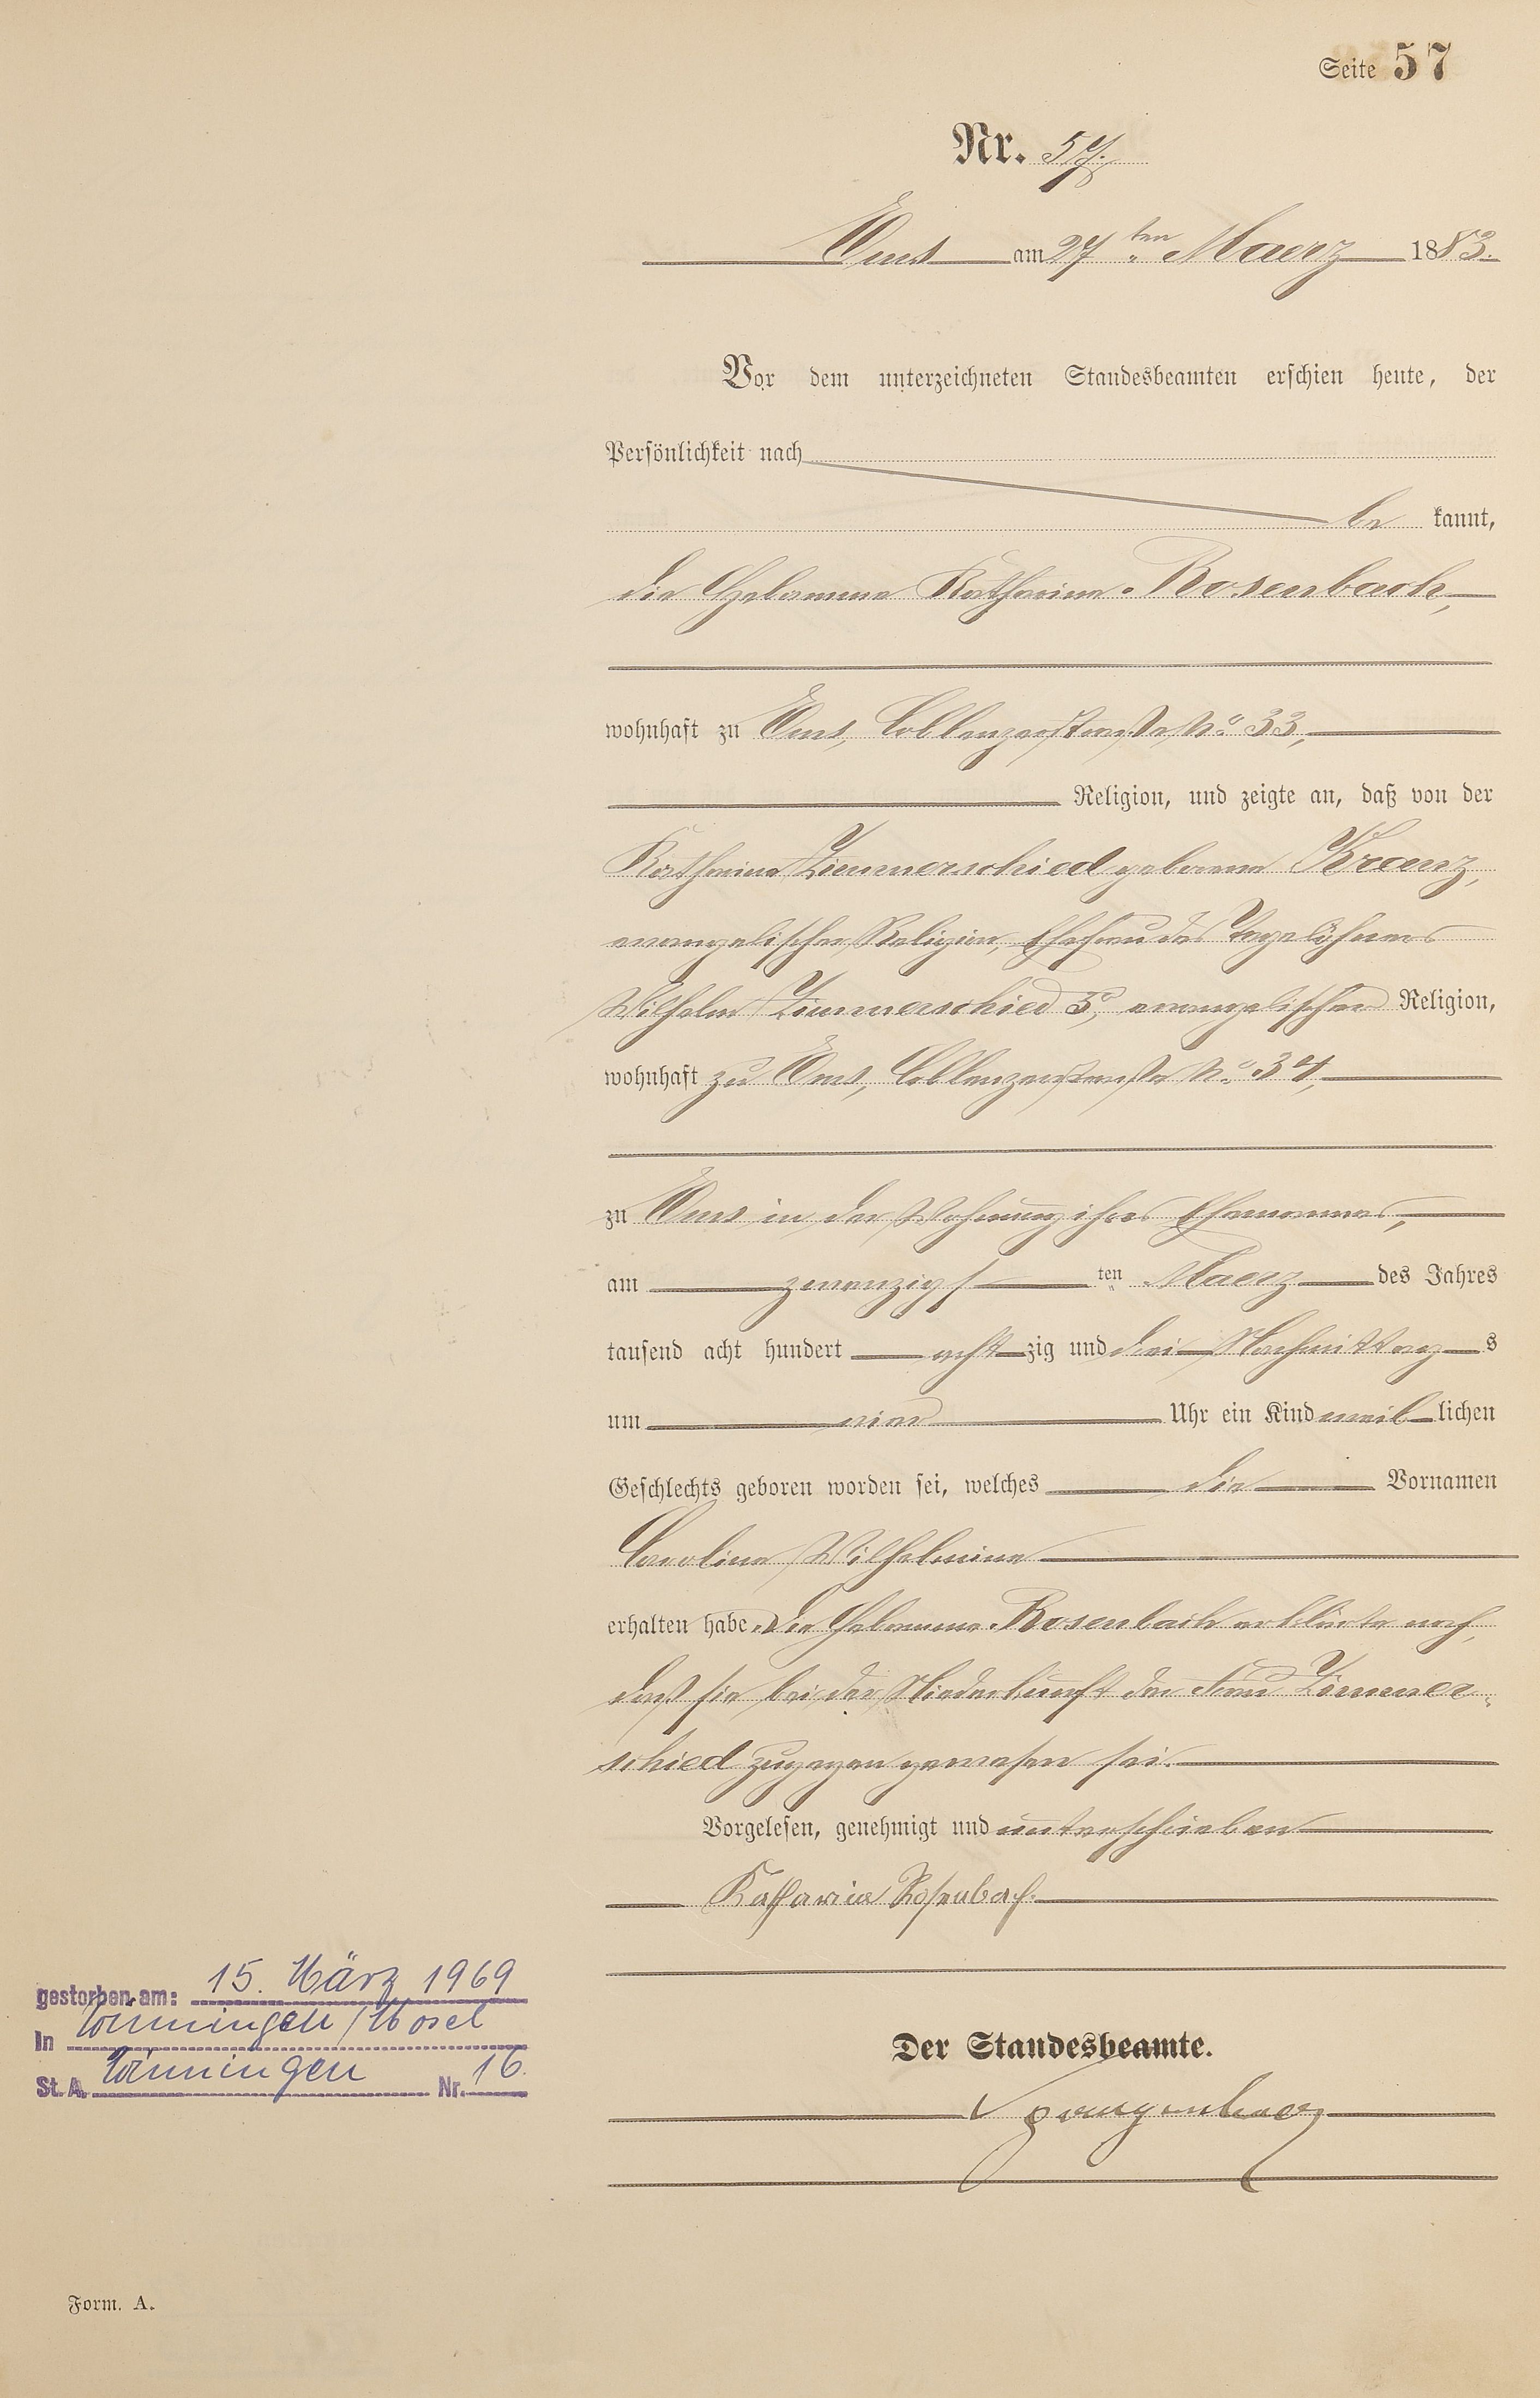 Seite 57
Nr. 57.
Ems am 27ten Maerz 1883.
Vor dem unterzeichneten Standesbeamten erschien heute, der
Persönlichkeit nach
be kannt,
die Hebamme Katharina Rosenbach,
wohnhaft zu Ems, Coblenzerstraße No. 33,
Religion, und zeigte an, daß von der
Katharina Zimmerschied geborene Kranz,
evangelischer Religion, Ehefrau des Tagelöhners
Wilhelm Zimmerschied 5r, evangelischer Religion,
wohnhaft zu Ems, Coblenzerstraße No. 34,
zu Ems in der Wohnung ihres Ehemannes,
am zwanzigsten Maerz des Jahres
tausend acht hundert achtzig und drei Nachmittags
um vier Uhr ein Kind weiblichen
Geschlechts geboren worden sei, welches die Vornamen
Carolina Wilhelmina
erhalten habe. Die Hebamme Rosenbach erklärte noch,
daß sie bei der Niederkunft der Frau Zimmer-
schied zugegen gewesen sei.
Vorgelesen, genehmigt und unterschrieben
Katharina Rosenbach.
Der Standesbeamte.
Spangenberg
gestorben am: 15. März 1969
In Winningen/Mosel
St. A. Winningen Nr. 16.
Form. A.